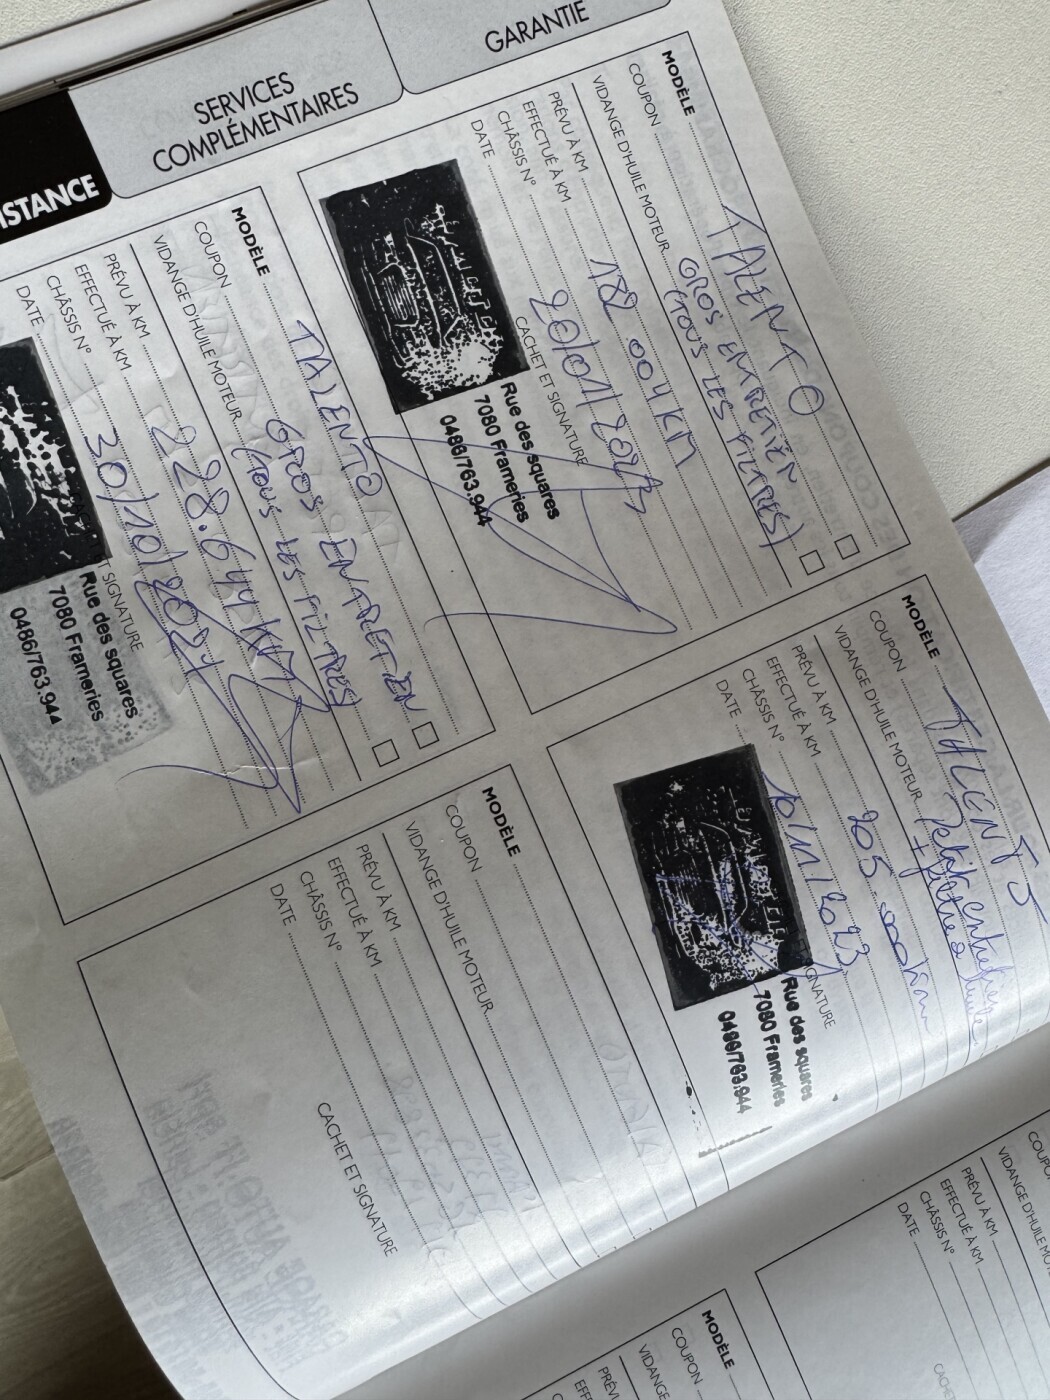 ISTANCE
SERVICES
COMPLÉMENTAIRES
GARANTIE
MODÈLE TALENTO
COUPON
VIDANGE D'HUILE MOTEUR GROS ENTRETIEN
(TOUS LES FILTRES)
PRÉVU À KM
EFFECTUÉ À KM 182.004 KM
CHÂSSIS N°
DATE 20/01/2023
CACHET ET SIGNATURE
Rue des squares
7080 Frameries
0486/763.944
MODÈLE TALENTO
COUPON
VIDANGE D'HUILE MOTEUR GROS ENTRETIEN
(TOUS LES FILTRES)
PRÉVU À KM
EFFECTUÉ À KM 228.644 KM
CHÂSSIS N°
DATE 30/10/2024
T SIGNATURE
Rue des squares
7080 Frameries
0486/763.944
MODÈLE TALENTO
COUPON
VIDANGE D'HUILE MOTEUR Petit entretien
+ filtre à huile
PRÉVU À KM
EFFECTUÉ À KM 205.000 km
CHÂSSIS N°
DATE 10/11/2023
GNATURE
Rue des squares
7080 Frameries
0486/763.944
MODÈLE
COUPON
VIDANGE D'HUILE MOTEUR
PRÉVU À KM
EFFECTUÉ À KM
CHÂSSIS N°
DATE
CACHET ET SIGNATURE
MODÈLE
COUPON
VIDANGE
PRÉVU
EFFECT
MODÈLE
COUPO
VIDANGE D'HUILE MOTE
PRÉVU À KM
EFFECTUÉ À KM
CHÂSSIS N°
DATE
CACHE